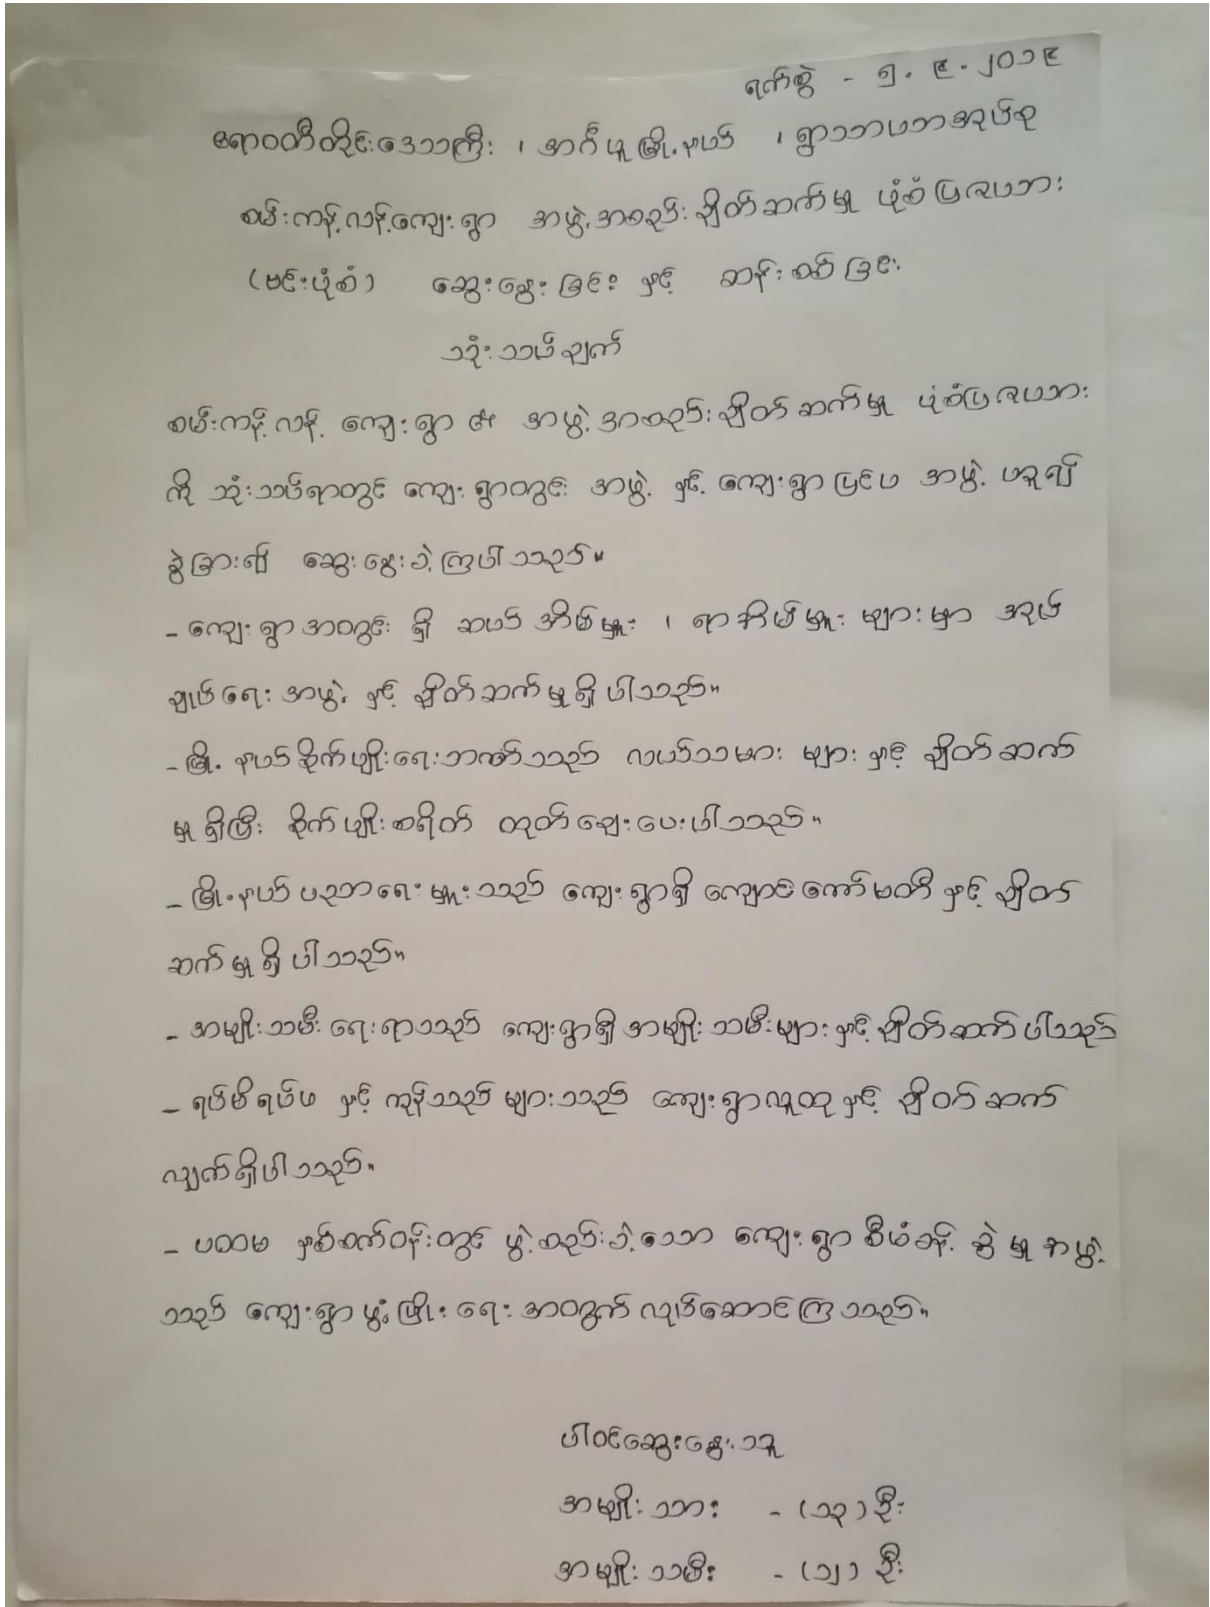 ရက်စွဲ - ၅. ၉. ၂၀၁၉
ဧရာဝတီတိုင်းဒေသကြီး ၊ အင်္ဂပူမြို့နယ် ၊ ရွာသာယာအုပ်စု
စမ်းကန့်လန့်ကျေးရွာ အဖွဲ့အစည်းချိတ်ဆက်မှု ပုံစံပြဇယား
(ဗင်းပုံစံ) ဆွေးနွေးခြင်း နှင့် ဆန်းစစ်ခြင်း
သုံးသပ်ချက်
စမ်းကန့်လန့် ကျေးရွာ ၏ အဖွဲ့အစည်းချိတ်ဆက်မှု ပုံစံပြဇယား
ကို သုံးသပ်ရာတွင် ကျေးရွာတွင်း အဖွဲ့ နှင့် ကျေးရွာပြင်ပ အဖွဲ့ ဟူ၍
ခွဲခြား၍ ဆွေးနွေးခဲ့ကြပါသည်။
- ကျေးရွာအတွင်း ရှိ ဆယ်အိမ်မှူး ၊ ရာအိမ်မှူး များမှာ အုပ်
ချုပ်ရေး အဖွဲ့ နှင့် ချိတ်ဆက်မှုရှိပါသည်။
- မြို့နယ်စိုက်ပျိုးရေးဘဏ်သည် လယ်သမား များ နှင့် ချိတ်ဆက်
မှုရှိပြီး စိုက်ပျိုးစရိတ် ထုတ်ချေးပေးပါသည်။
- မြို့နယ်ပညာရေးမှူးသည် ကျေးရွာရှိ ကျောင်းကော်မတီ နှင့် ချိတ်
ဆက်မှုရှိပါသည်။
- အမျိုးသမီးရေးရာသည် ကျေးရွာရှိ အမျိုးသမီးများ နှင့် ချိတ်ဆက်ပါသည်
- ရပ်မိရပ်ဖ နှင့် ကုန်သည်များသည် ကျေးရွာလူထု နှင့် ချိတ်ဆက်
လျက်ရှိပါသည်။
- ပထမ နှစ်စက်ဝန်းတွင် ဖွဲ့စည်းခဲ့သော ကျေးရွာ စီမံခန့်ခွဲမှုအဖွဲ့
သည် ကျေးရွာဖွံ့ဖြိုးရေး အတွက် လုပ်ဆောင်ကြသည်။
ပါဝင်ဆွေးနွေးသူ
အမျိုးသား - (၁၃) ဦး
အမျိုးသမီး - (၁၂) ဦး